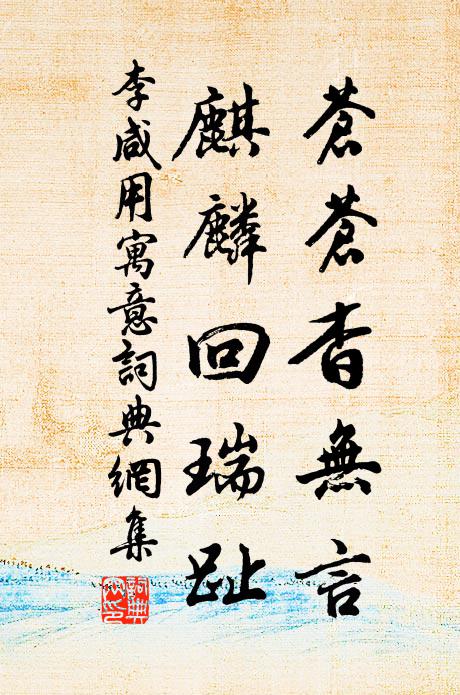 蒼蒼杳無言
麒麟回瑞趾
李咸用寓意詞典網集